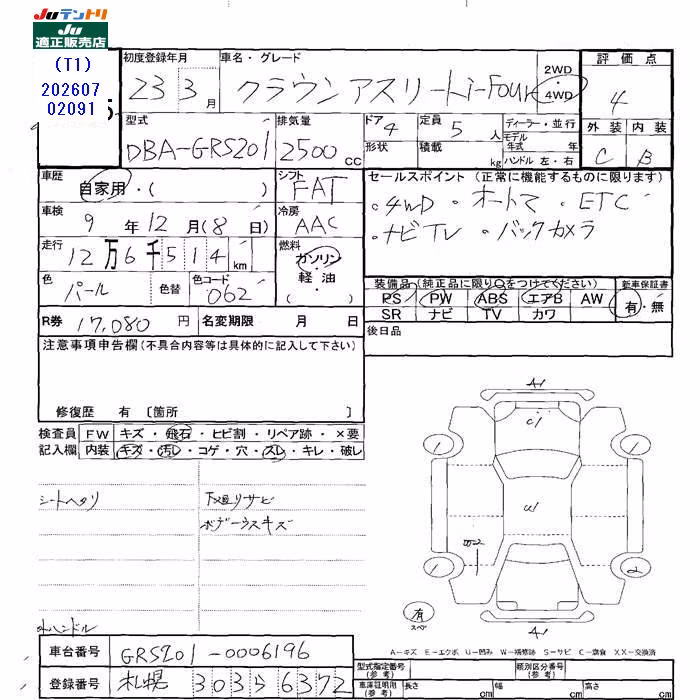 Juテントリ
Ju
適正販売店
(T1)
202607
02091
5
初度登録年月 23 3月
車名・グレード クラウンアスリートi-Four
2WD・4WD
評価点 4
外装 内装
C B
型式 DBA-GRS201
排気量 2500cc
ドア 4
形状
定員 5人
積載 kg
ディーラー・並行
モデル年式 年
ハンドル 左・右
車歴 自家用・( )
シフト FAT
車検 9年12月(8日)
冷房 AAC
走行 12万6千514km
燃料 ガソリン・軽油・( )
色 パール 色替
色コード 062
セールスポイント (正常に機能するものに限ります)
・4WD ・オートマ ・ETC
・ナビTV ・バックカメラ
装備品 (純正品に限り○をつけてください) 新車保証書
PS PW ABS エアB AW 有・無
SR ナビ TV カワ
R券 17,080円 名変期限 月 日
後日品
注意事項申告欄 (不具合内容等は具体的に記入して下さい)
修復歴 有 〔箇所 〕
検査員 FW キズ・飛石・ヒビ割・リペア跡・×要
記入欄 内装 キズ・汚レ・コゲ・穴・スレ・キレ・破レ
シートヘタリ
下廻リサビ
ボデーウスキズ
A1
C1
1 1
U1
1 2
A1
有
スペア
A-キズ E-エクボ U-凹み W-補修跡 S-サビ C-腐食 XX-交換済
車台番号 GRS201-0006196
登録番号 札幌 303 ス 6372
型式指定番号(参考) 類別区分番号(参考)
車庫証明用(参考) 長さ cm 幅 cm 高さ cm